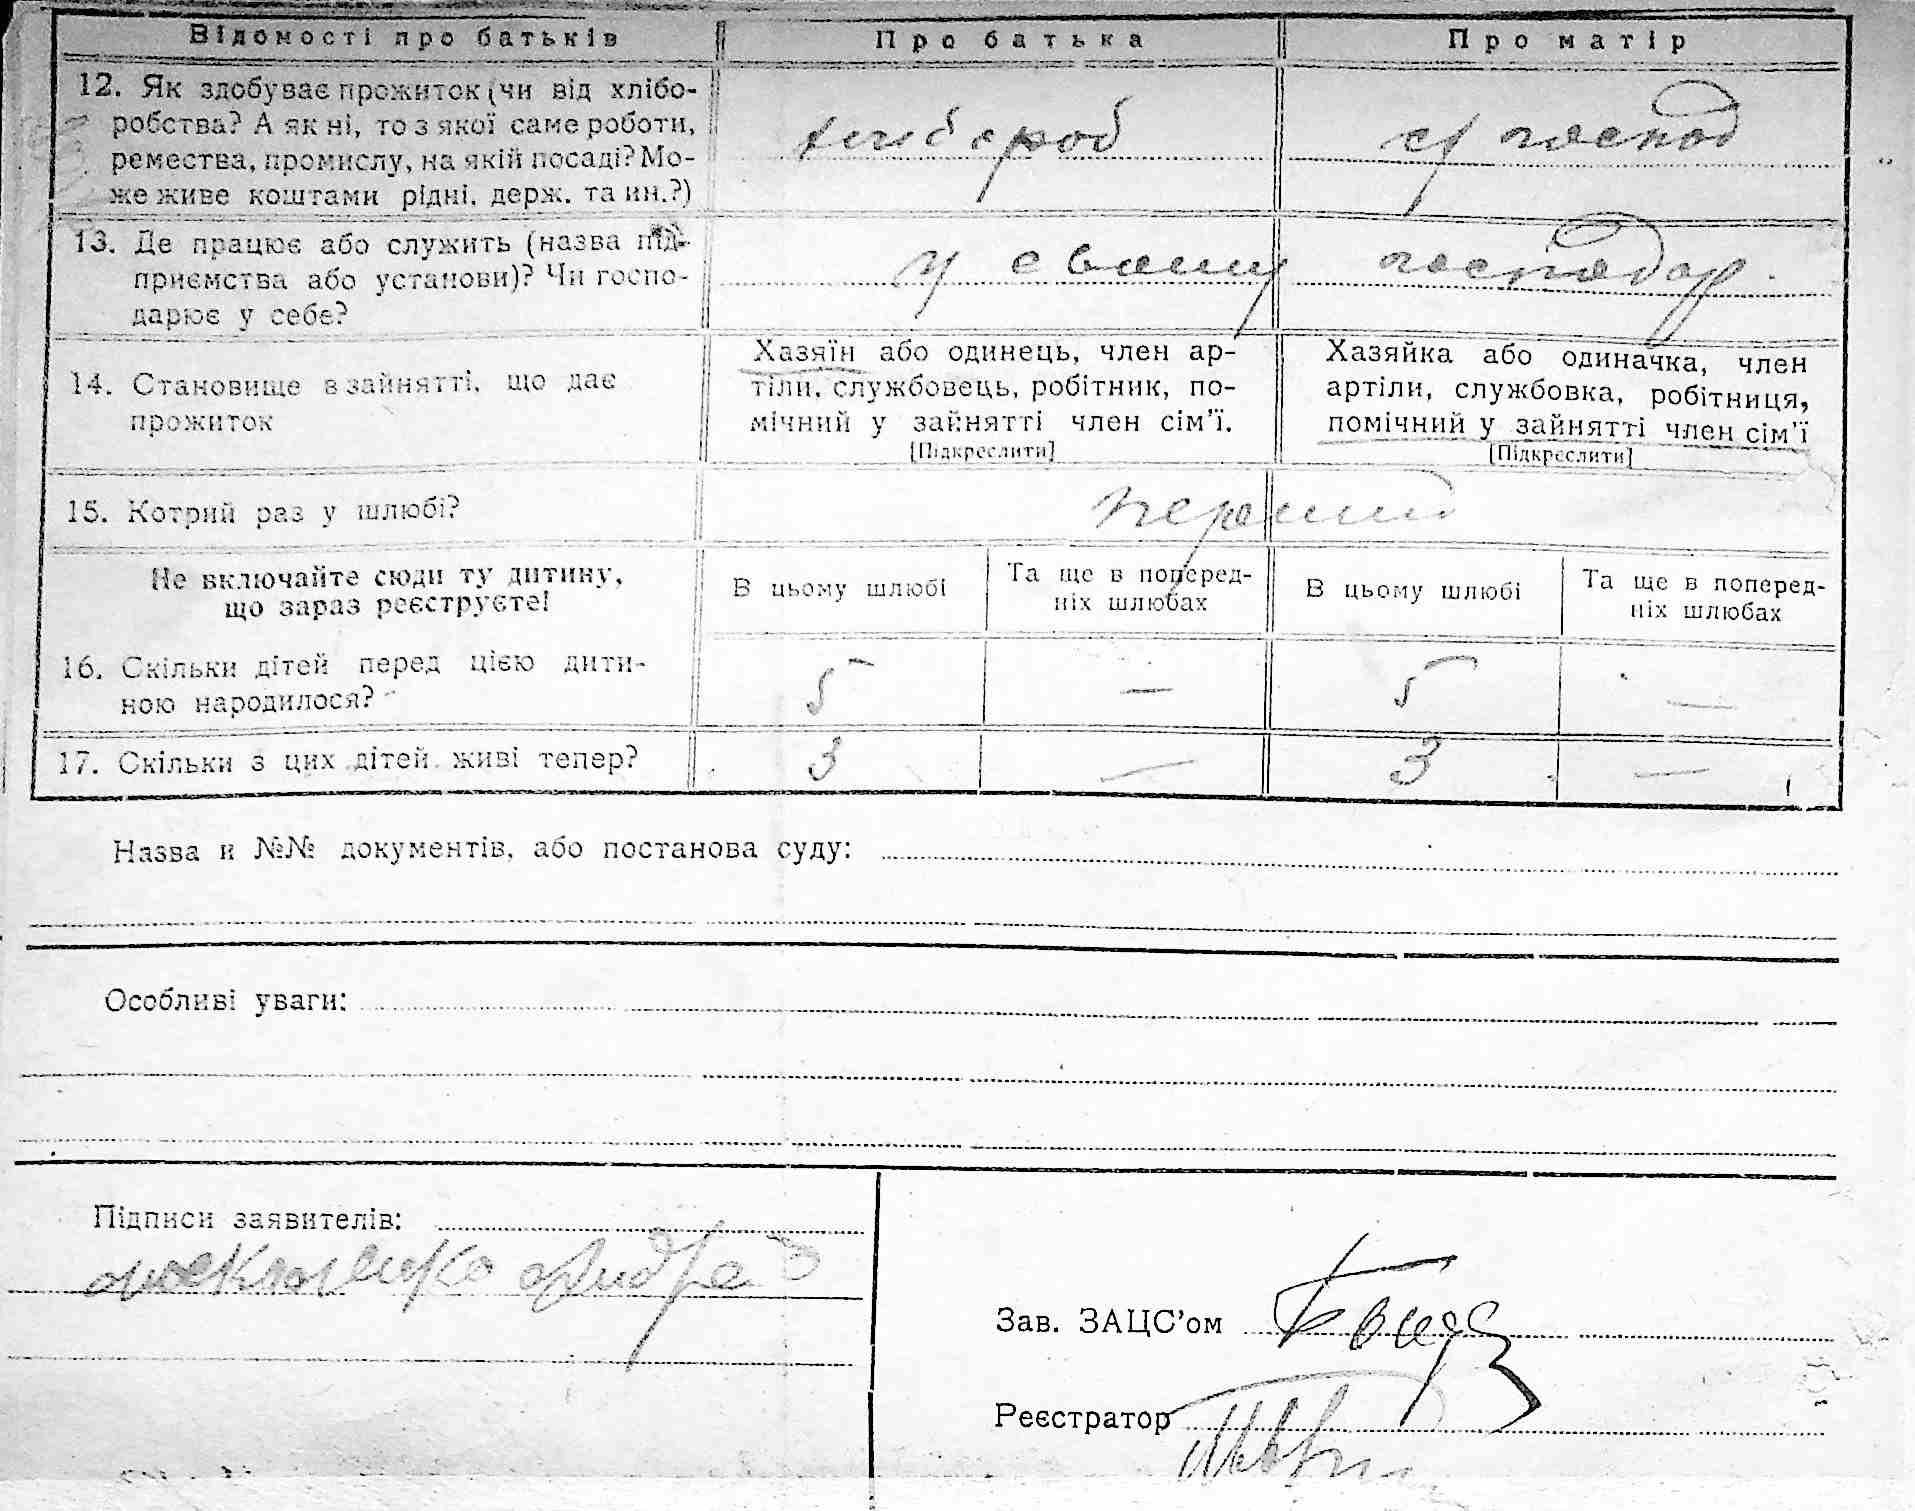 Відомості про батьків Про батька Про матір
12. Як здобуває прожиток (чи від хлібо-
робства? А як ні, то з якої саме роботи,
ремества, промислу, на якій посаді? Мо-
же живе коштами рідні, держ. та ин.?)
хлібороб
господ
13. Де працює або служить (назва під-
приємства або установи)? Чи госпо-
дарює у себе?
у своему господар
14. Становище в зайнятті, що дає
прожиток
Хазяїн або одинець, член ар-
тіли, службовець, робітник, по-
мічний у зайнятті член сім'ї.
[Підкреслити]
Хазяйка або одиначка, член
артіли, службовка, робітниця,
помічний у зайнятті член сім'ї
[Підкреслити]
15. Котрий раз у шлюбі?
перший
Не включайте сюди ту дитину,
що зараз реєструєте!
В цьому шлюбі
Та ще в поперед-
ніх шлюбах
В цьому шлюбі
Та ще в поперед-
ніх шлюбах
16. Скільки дітей перед цією дити-
ною народилося?
5 — 5 —
17. Скільки з цих дітей живі тепер?
3 — 3 —
Назва и №№ документів, або постанова суду:
Особливі уваги:
Підписи заявителів:
Зав. ЗАЦС'ом
Реєстратор